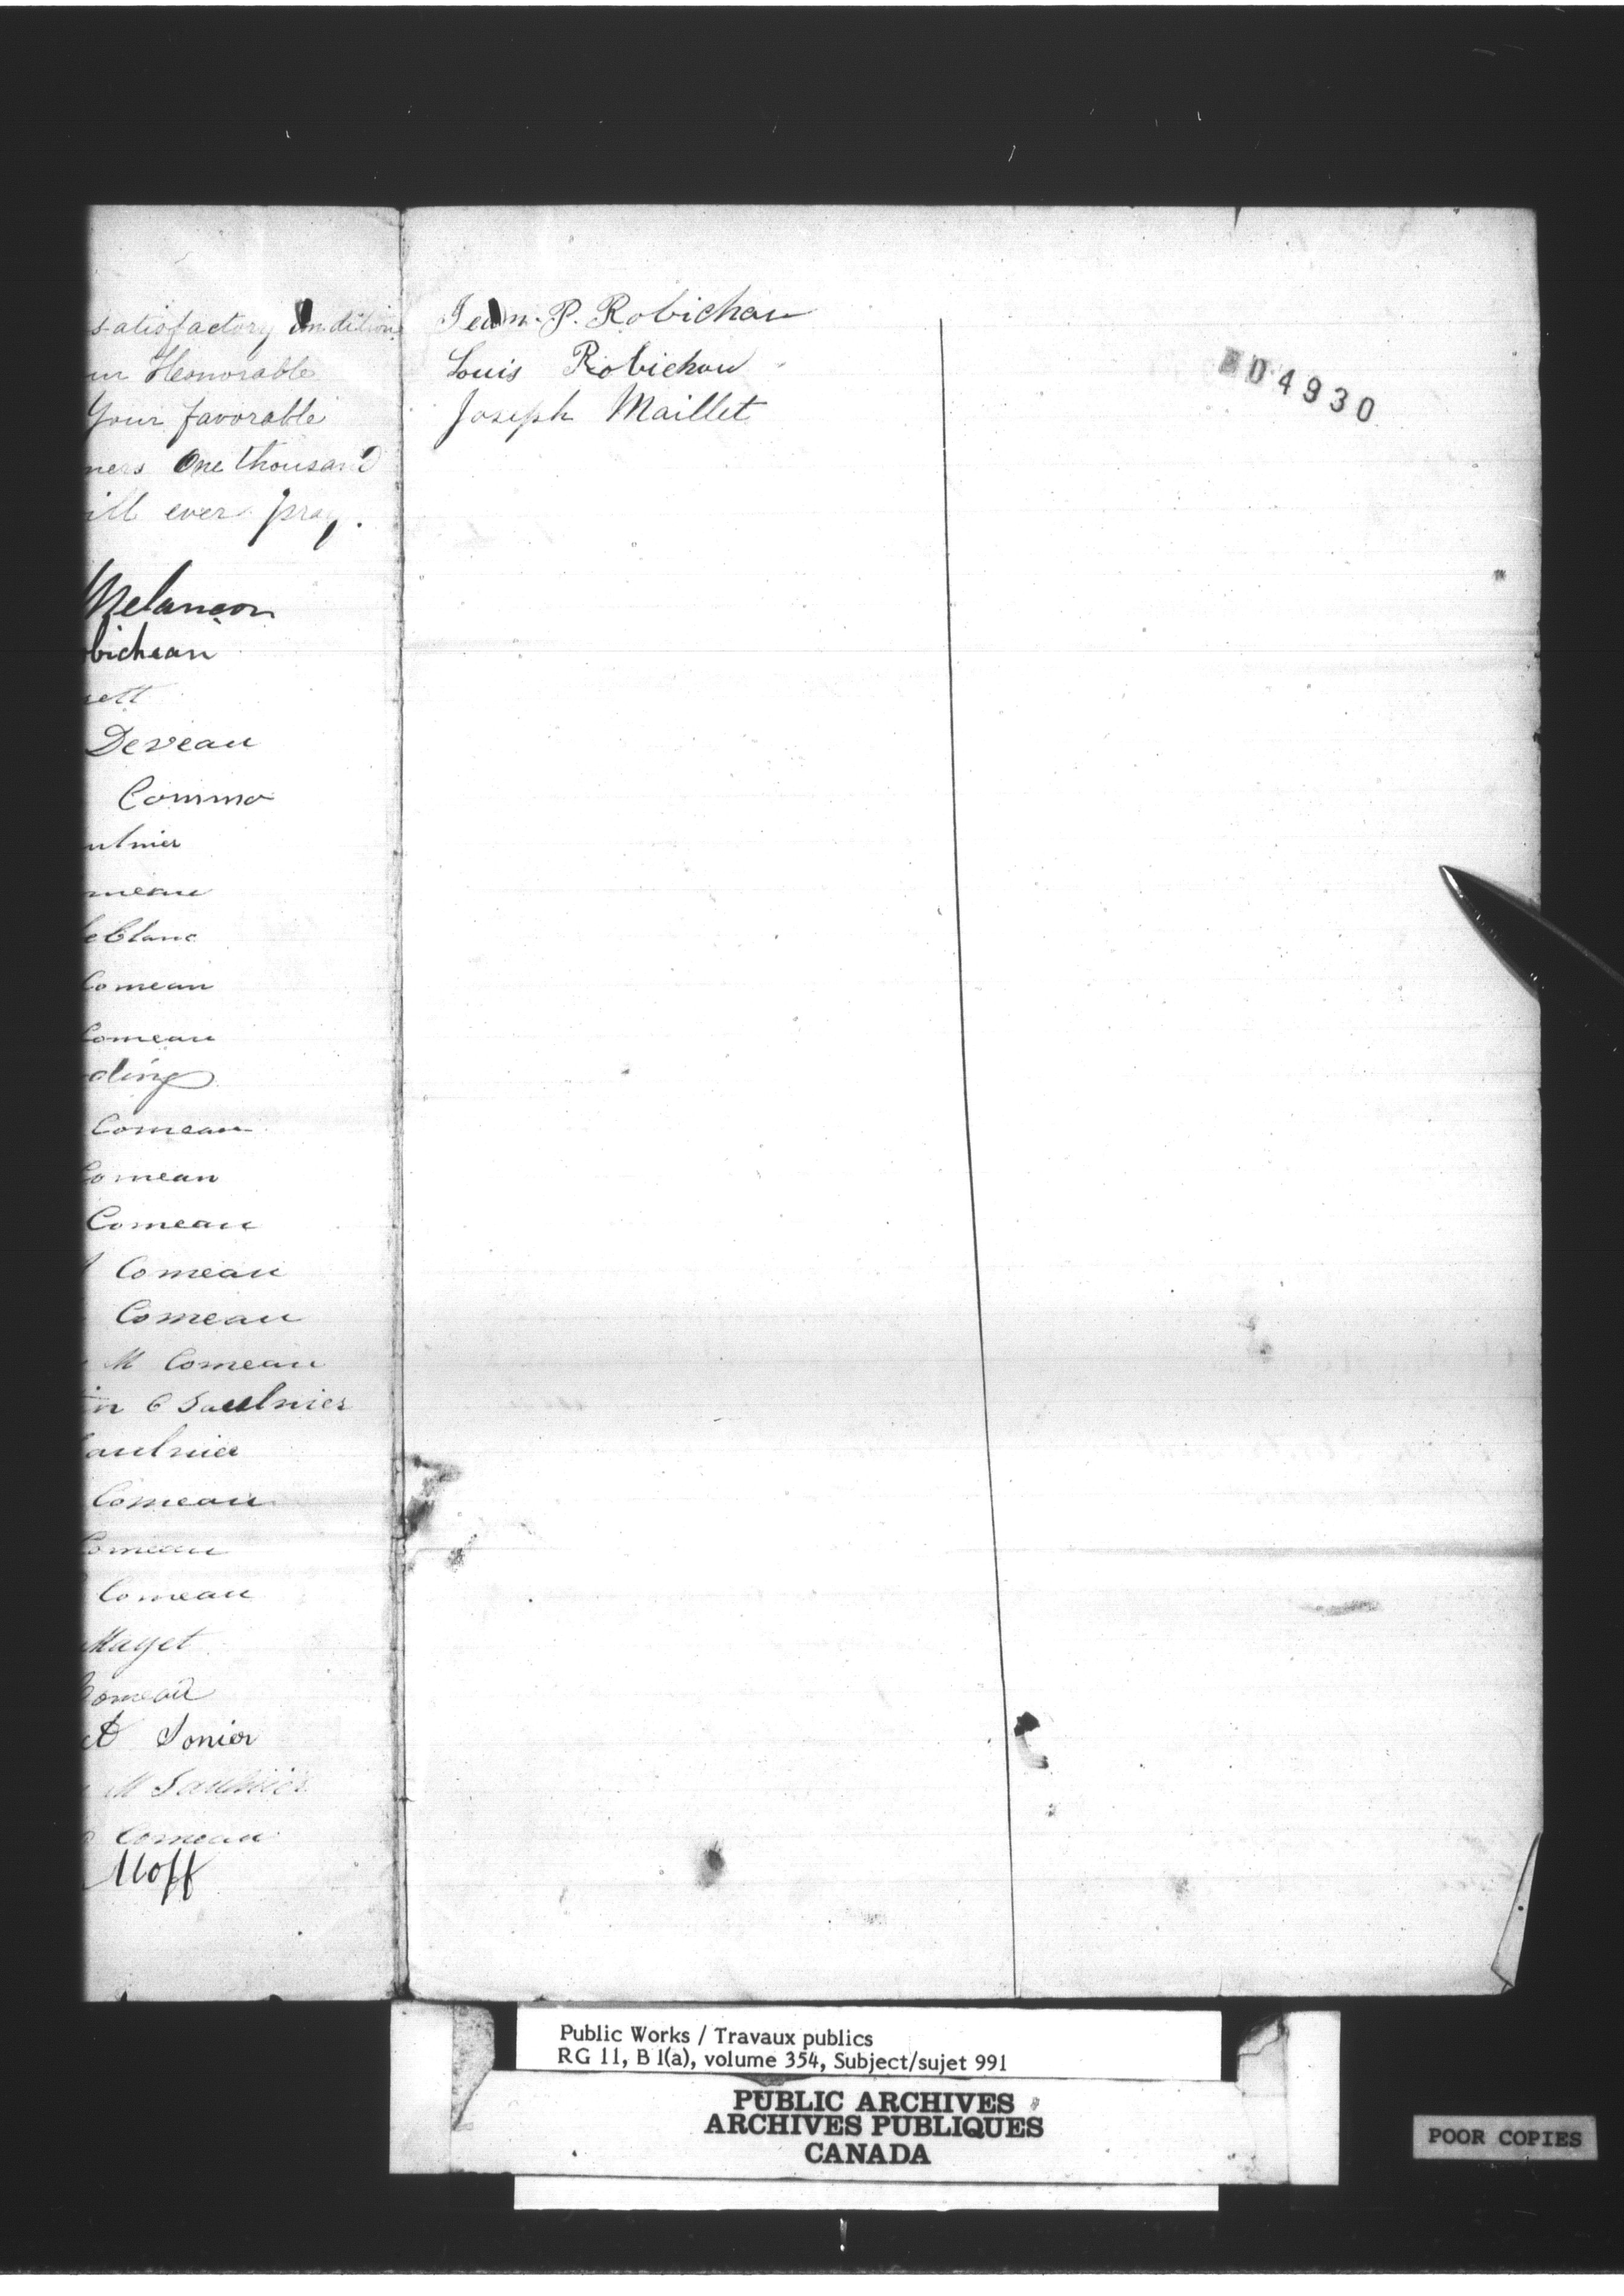 satisfactory Condition
ur Honorable
Your favorable
ners One thousand
ill ever pray.
Melancon
obicheau
nett
Deveau
Commo
ulnier
omeau
leBlanc
Comeau
Comeau
ding
Comeau
Comeau
Comeau
Comeau
Comeau
M Comeau
in C Saulnier
Saulnier
Comeau
Comeau
Comeau
Mayet
Comeau
et Sonier
M Saulnier
Comeau
Jean. P. Robichau
Louis Robichau
Joseph Maillet
D4930
Public Works / Travaux publics
RG 11, B 1(a), volume 354, Subject/sujet 991
PUBLIC ARCHIVES
ARCHIVES PUBLIQUES
CANADA
POOR COPIES